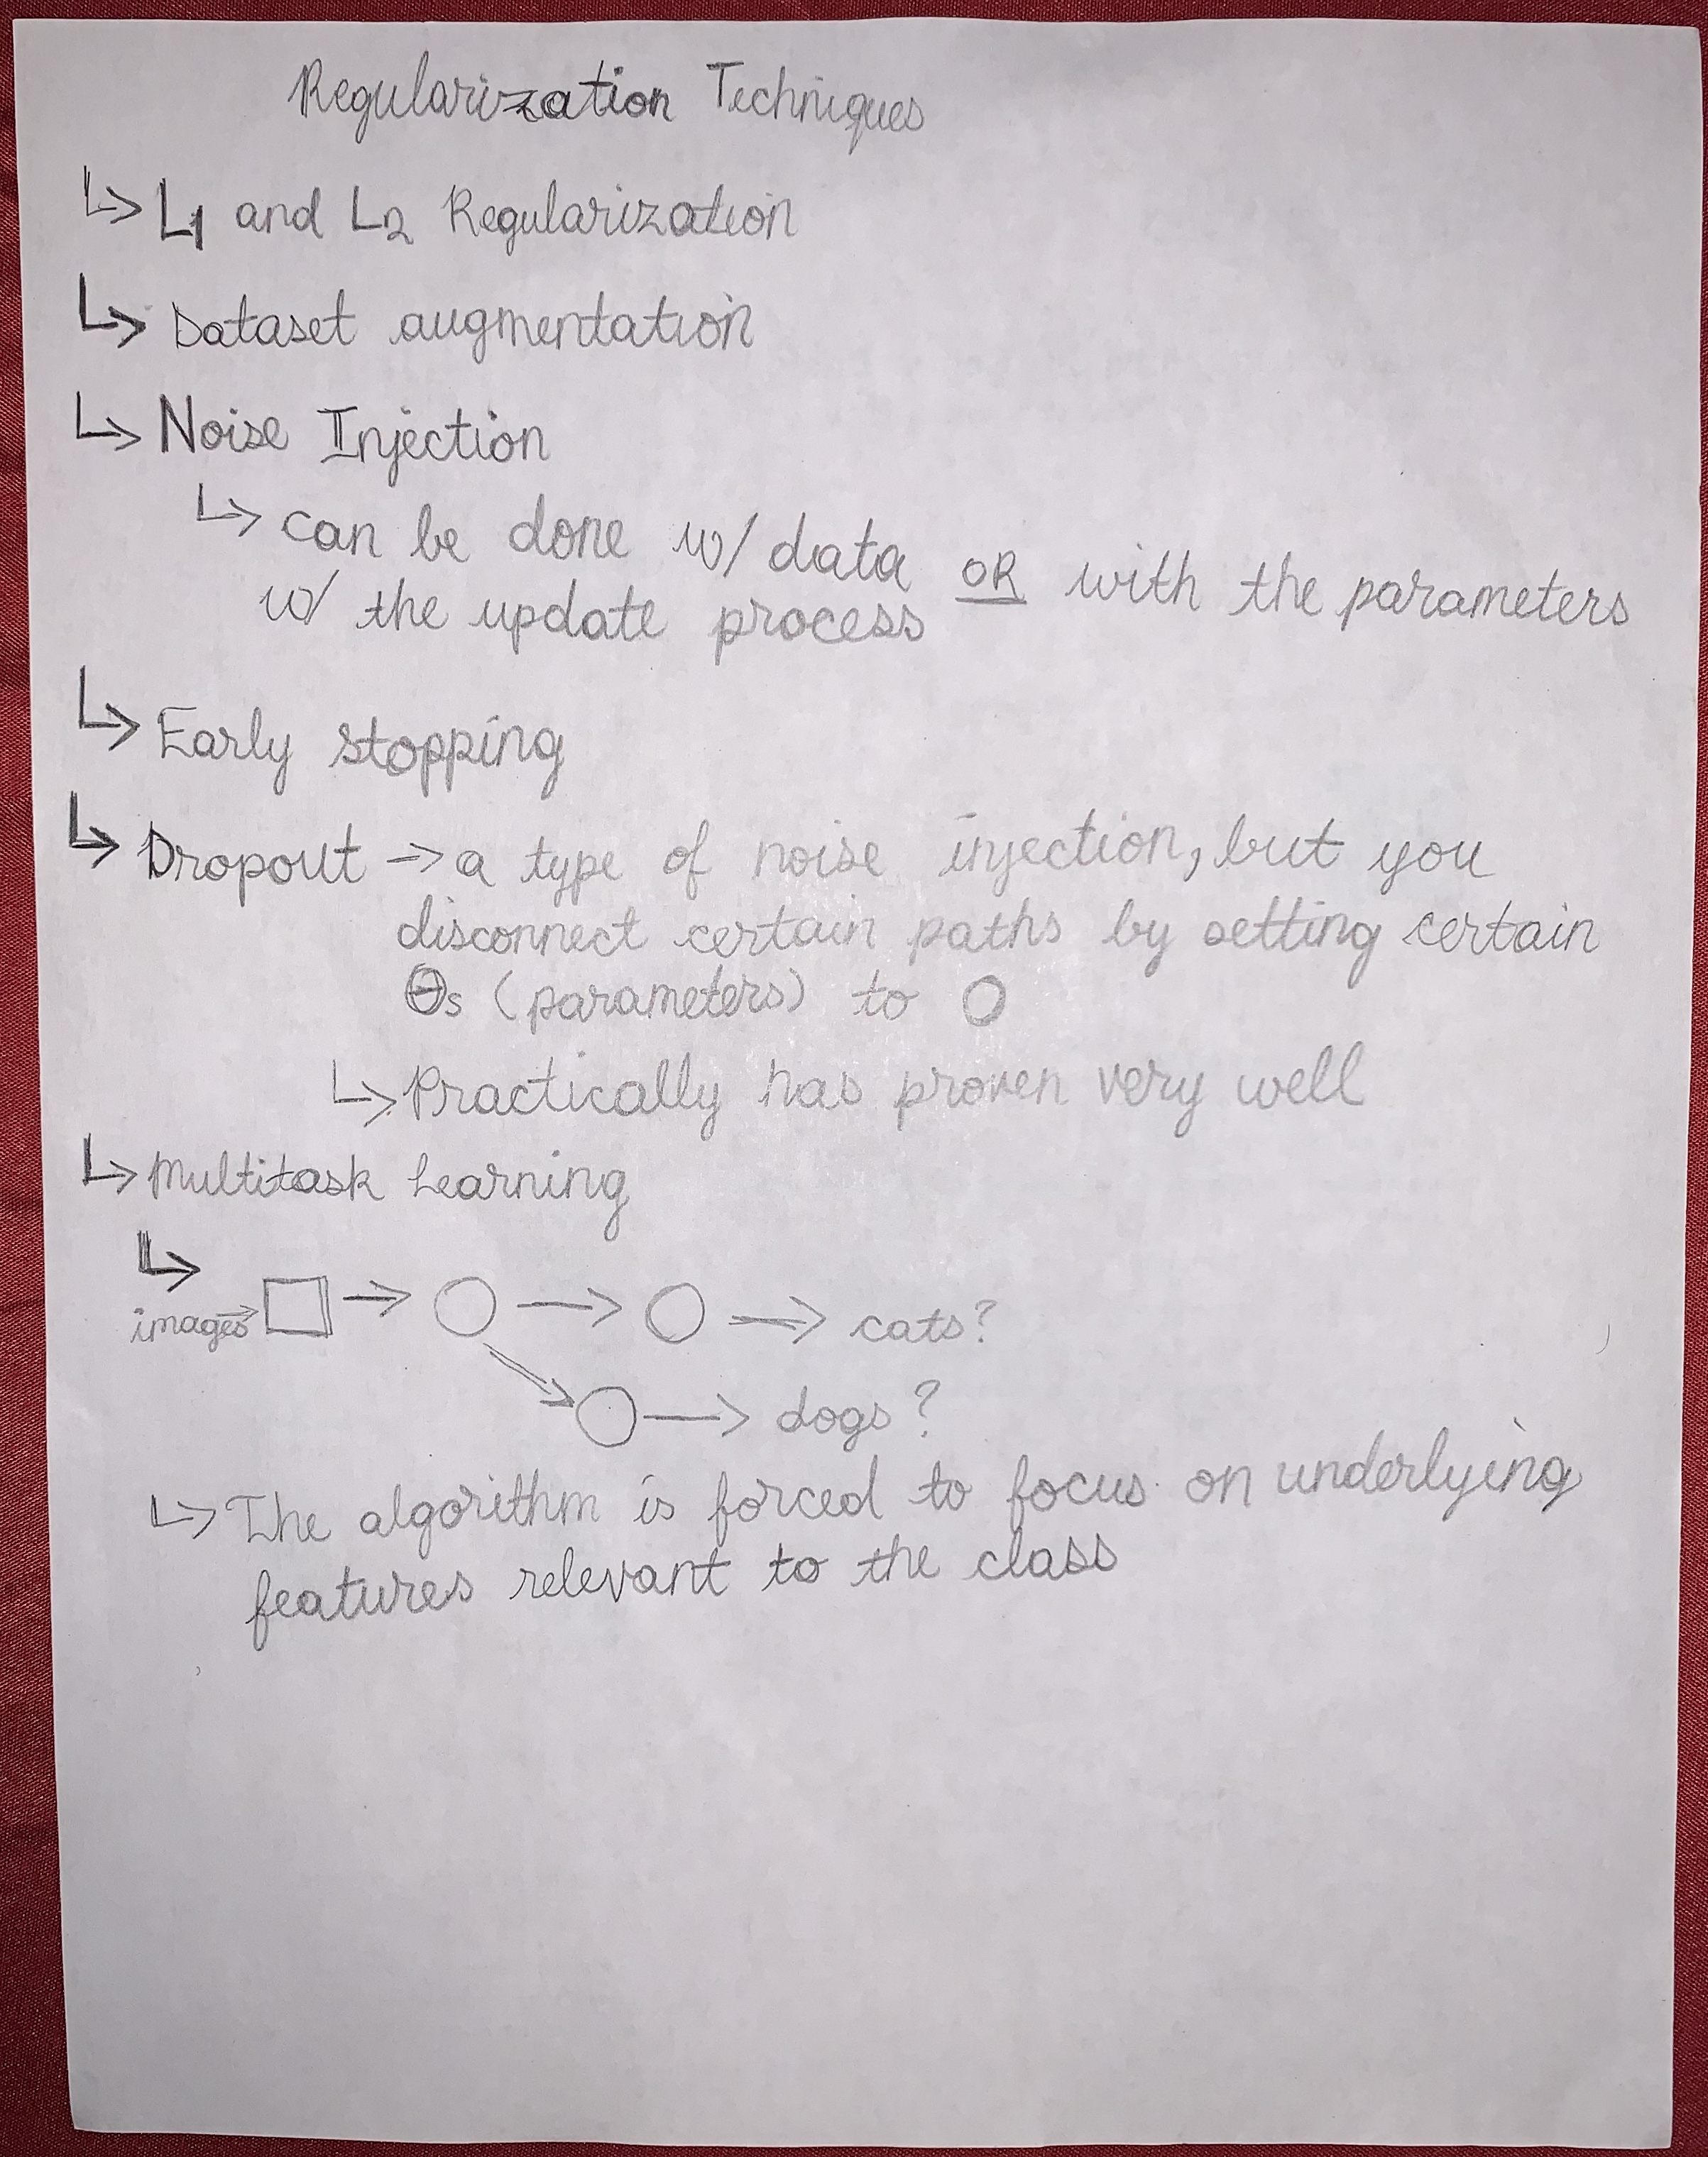 Regularization Techniques
↳ L1 and L2 Regularization
↳ Dataset augmentation
↳ Noise Injection
↳ can be done w/ data OR with the parameters
w/ the update process
↳ Early stopping
↳ Dropout → a type of noise injection, but you
disconnect certain paths by setting certain
Θs (parameters) to 0
↳ Practically has proven very well
↳ Multitask Learning
↳
images → → → → cats?
→ dogs?
↳ The algorithm is forced to focus on underlying
features relevant to the class